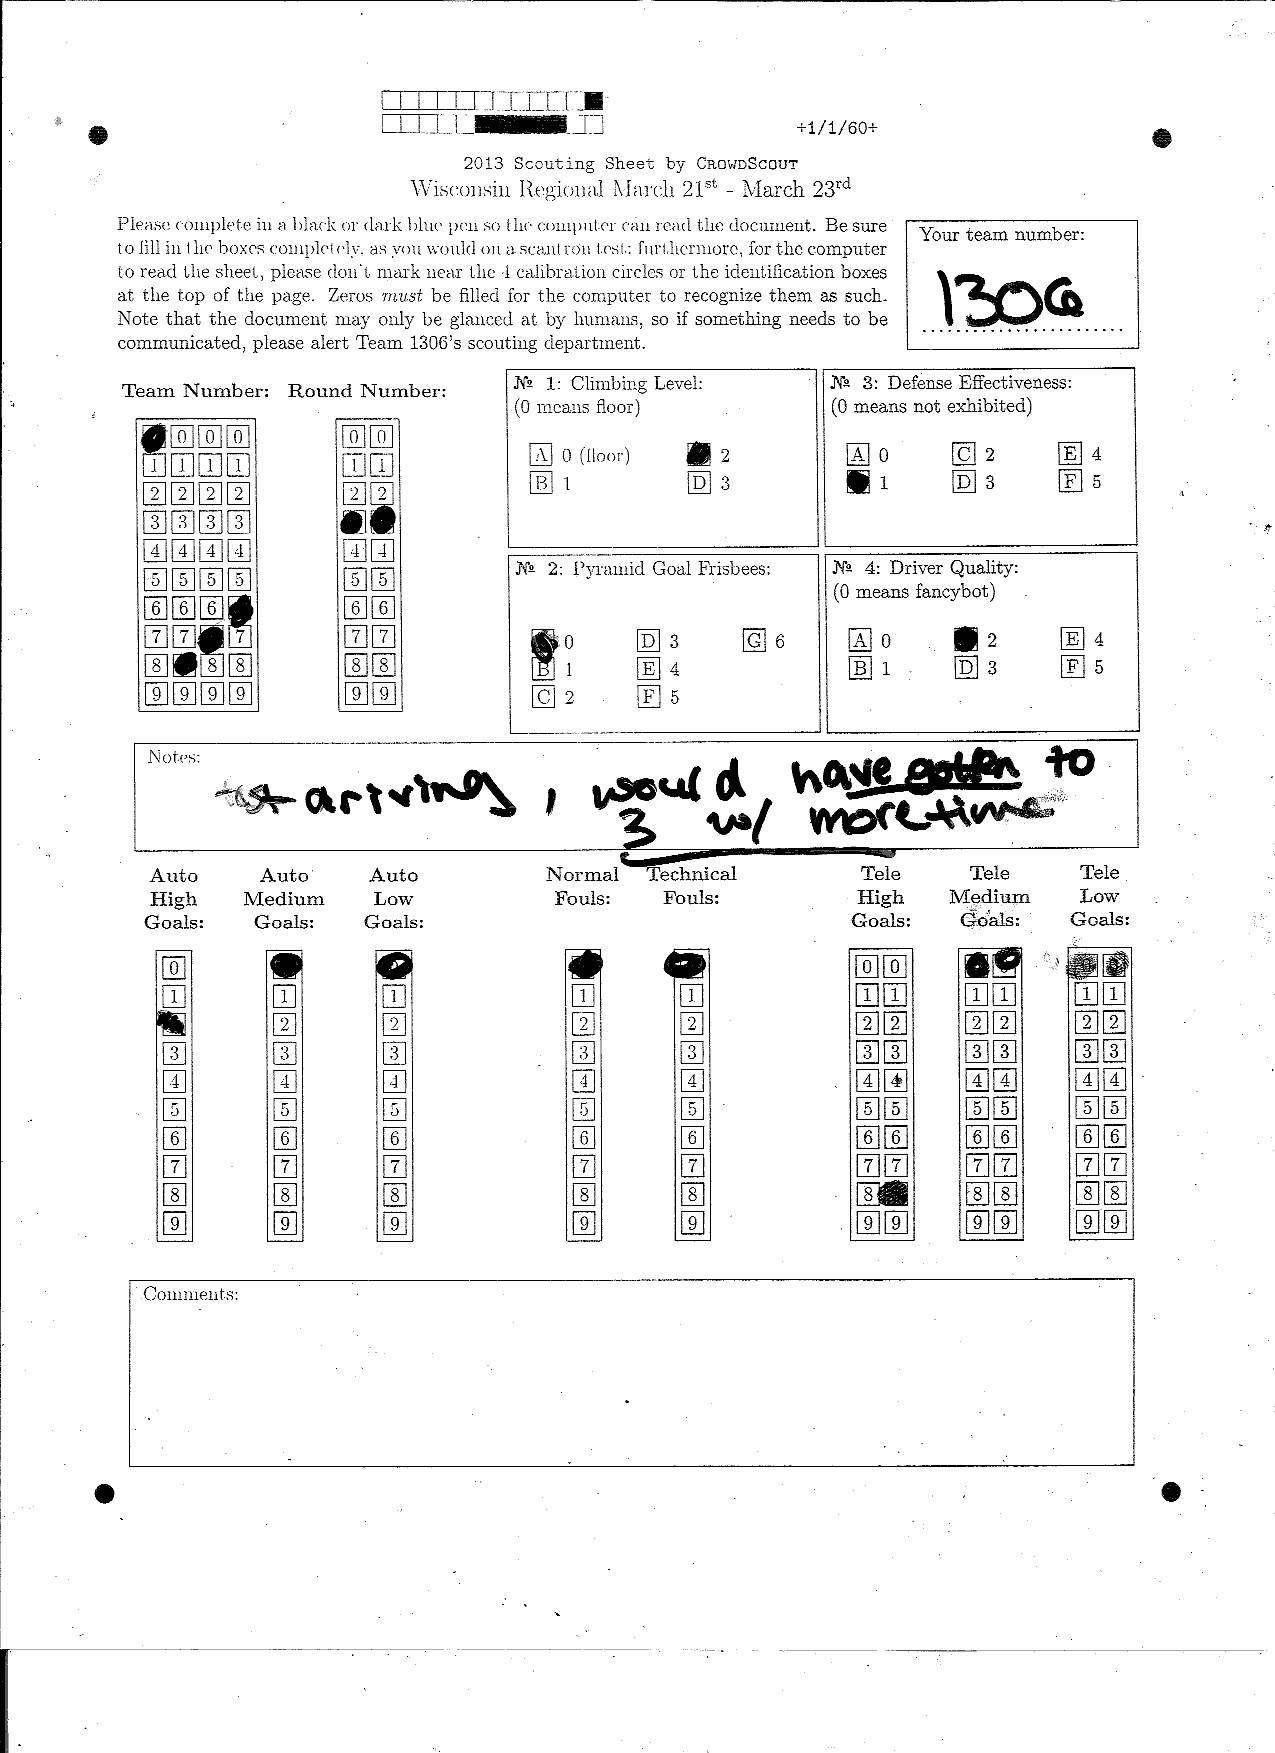 +1/1/60+
2013 Scouting Sheet by CROWDSCOUT
Wisconsin Regional March 21st - March 23rd
Please complete in a black or dark blue pen so the computer can read the document. Be sure
to fill in the boxes completely, as you would on a scantron test; furthermore, for the computer
to read the sheet, please don't mark near the 4 calibration circles or the identification boxes
at the top of the page. Zeros must be filled for the computer to recognize them as such.
Note that the document may only be glanced at by humans, so if something needs to be
communicated, please alert Team 1306's scouting department.
Your team number:
1306
Team Number: Round Number:
0 0 0 0 0
1 1 1 1 1 1
2 2 2 2 2 2
3 3 3 3
4 4 4 4 4 4
5 5 5 5 5 5
6 6 6 6 6
7 7 7 7 7
8 8 8 8 8
9 9 9 9 9 9
№ 1: Climbing Level:
(0 means floor)
A 0 (floor) 2
B 1 D 3
№ 3: Defense Effectiveness:
(0 means not exhibited)
A 0 C 2 E 4
1 D 3 F 5
№ 2: Pyramid Goal Frisbees:
0 D 3 G 6
B 1 E 4
C 2 F 5
№ 4: Driver Quality:
(0 means fancybot)
A 0 2 E 4
B 1 D 3 F 5
Notes:
, would have gotten to
3 w/ more time
Auto High Goals:
Auto Medium Goals:
Auto Low Goals:
Normal Fouls:
Technical Fouls:
Tele High Goals:
Tele Medium Goals:
Tele Low Goals:
0 0 0
1 1 1 1 1 1 1 1 1 1 1
2 2 2 2 2 2 2 2 2 2
3 3 3 3 3 3 3 3 3 3 3
4 4 4 4 4 4 4 4 4 4 4
5 5 5 5 5 5 5 5 5 5 5
6 6 6 6 6 6 6 6 6 6 6
7 7 7 7 7 7 7 7 7 7 7
8 8 8 8 8 8 8 8 8 8
9 9 9 9 9 9 9 9 9 9 9
Comments: